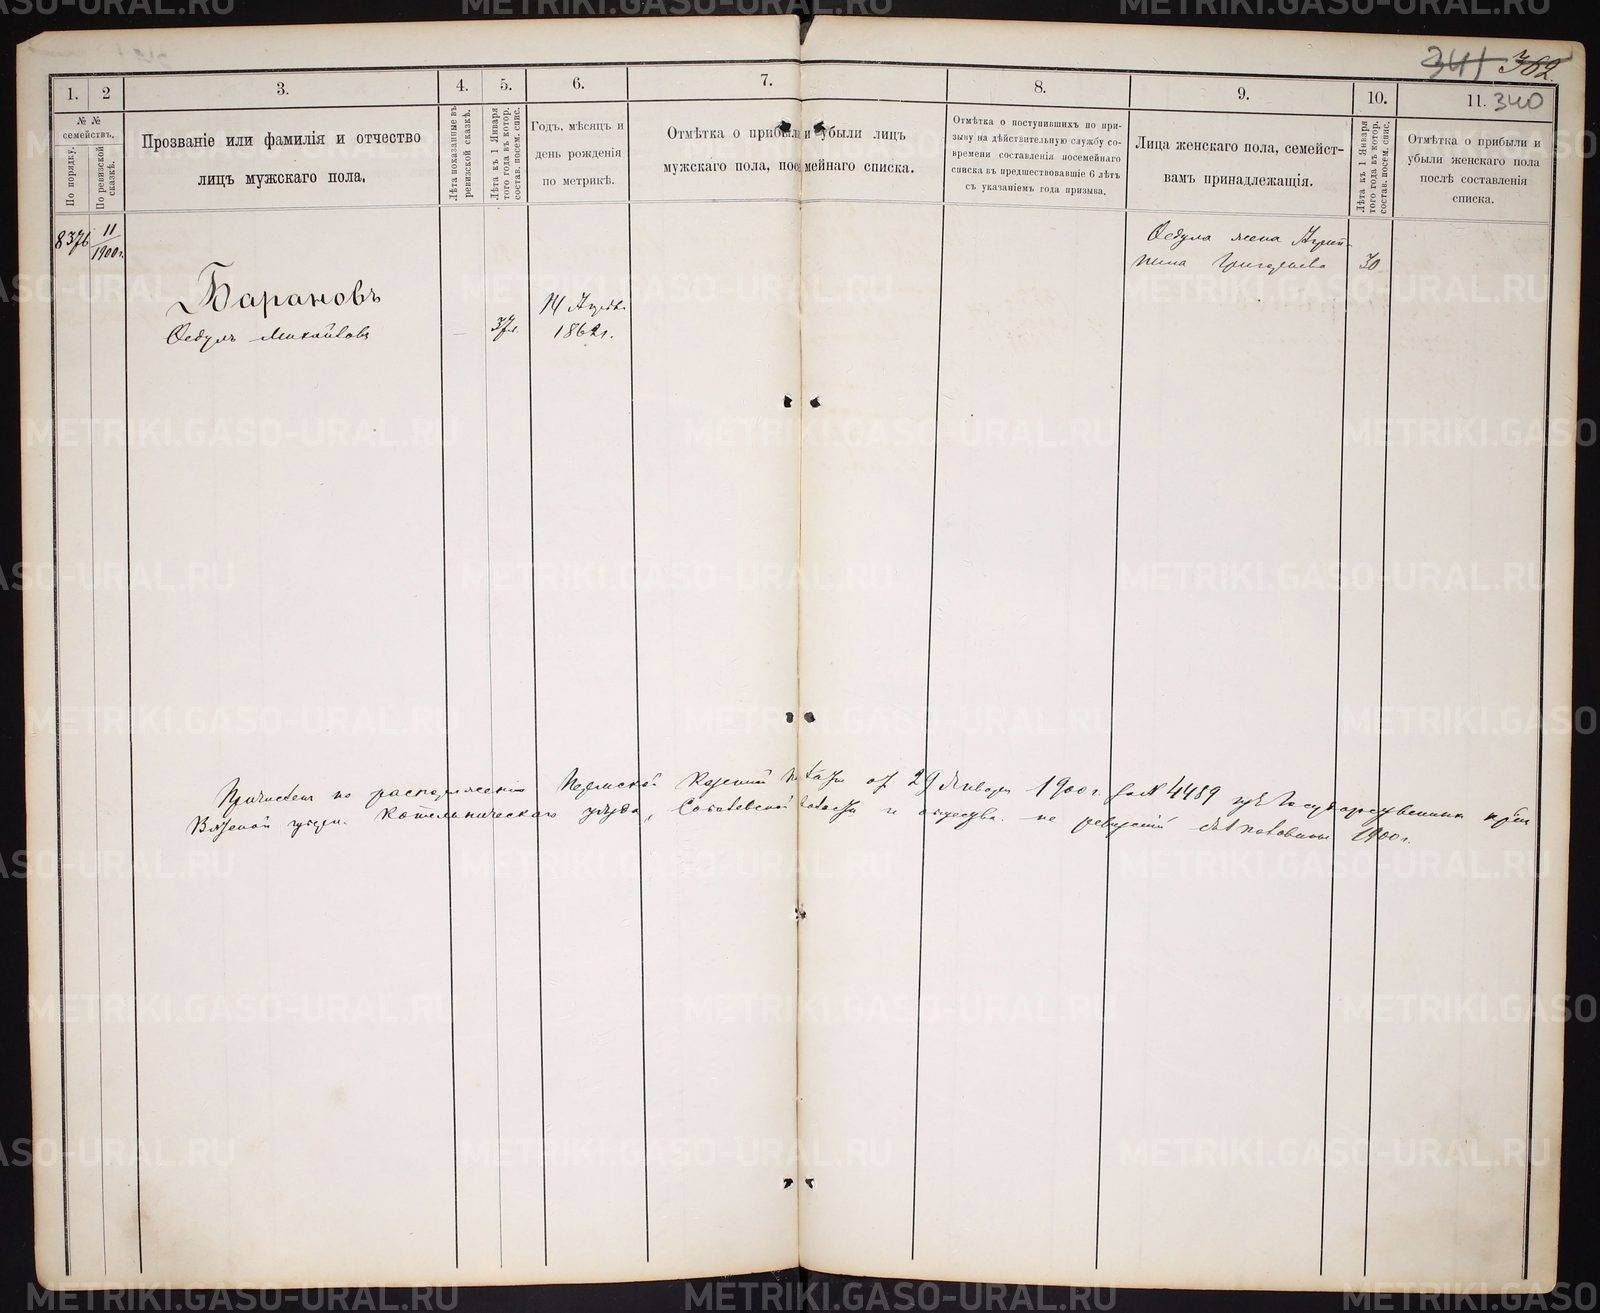 341 362
1. 2 3. 4. 5. 6. 7. 8. 9. 10. 11. 340
№ №
семействъ.
По порядку.
По ревизской
сказкѣ.
Прозваніе или фамилія и отчество
лицъ мужскаго пола.
Лѣта показанные въ
ревизской сказкѣ.
Лѣта къ 1 Января
того года въ котор.
состав. посем. спис.
Годъ, мѣсяцъ и
день рожденія
по метрикѣ.
Отмѣтка о прибыли и убыли лицъ
мужскаго пола, посемейнаго списка.
Отмѣтка о поступившихъ по при-
зыву на дѣйствительную службу со-
времени составленія посемейнаго
списка въ предшествовавшіе 6 лѣтъ
съ указаніемъ года призыва.
Лица женскаго пола, семейст-
вамъ принадлежащія.
Лѣта къ 1 Января
того года въ котор.
состав. посем. спис.
Отмѣтка о прибыли и
убыли женскаго пола
послѣ составленія
списка.
8376 11
1900 г.
Барановъ
Ѳедулъ Михайловъ
—
37 л.
1862 г.
Ѳедула жена
Григорьева 30
Причисленъ по распоряженію Пермской Казенной Палаты от 29 Января 1900 г. за № 4489 изъ Государственныхъ
Вятской губерн. Котельническаго уѣзда, волости и общества. половины 1900 г.
METRIKI.GASO-URAL.RU